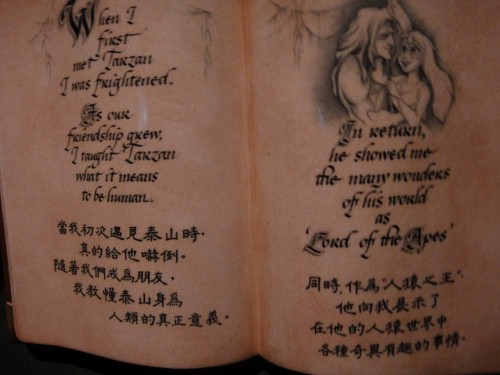 When I
first
met Tarzan
I was frightened.
As our
friendship grew,
I taught Tarzan
what it means
to be human.
當我初次遇見泰山時,
真的給他嚇倒。
隨著我們成為朋友,
我教懂泰山身為
人類的真正意義。
In return,
he showed me
the many wonders
of his world
as
'Lord of the Apes'
同時,作為"人猿之王",
他向我展示了
在他的人猿世界中
各種奇異有趣的事情.